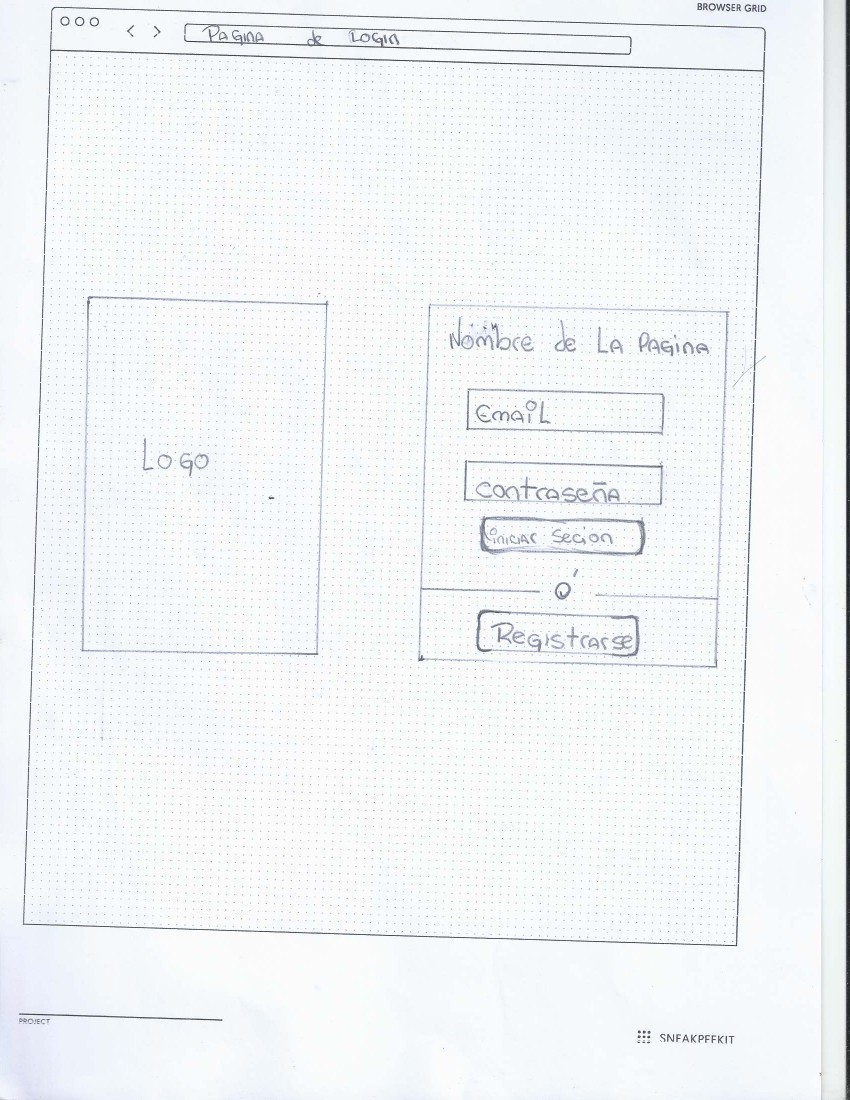 BROWSER GRID
PAGINA de LOGIN
Nombre de LA PAGINA
EmAiL
LOGO
contraseña
iniciar secion
O'
Registrarse
PROJECT
SNEAKPEEKIT